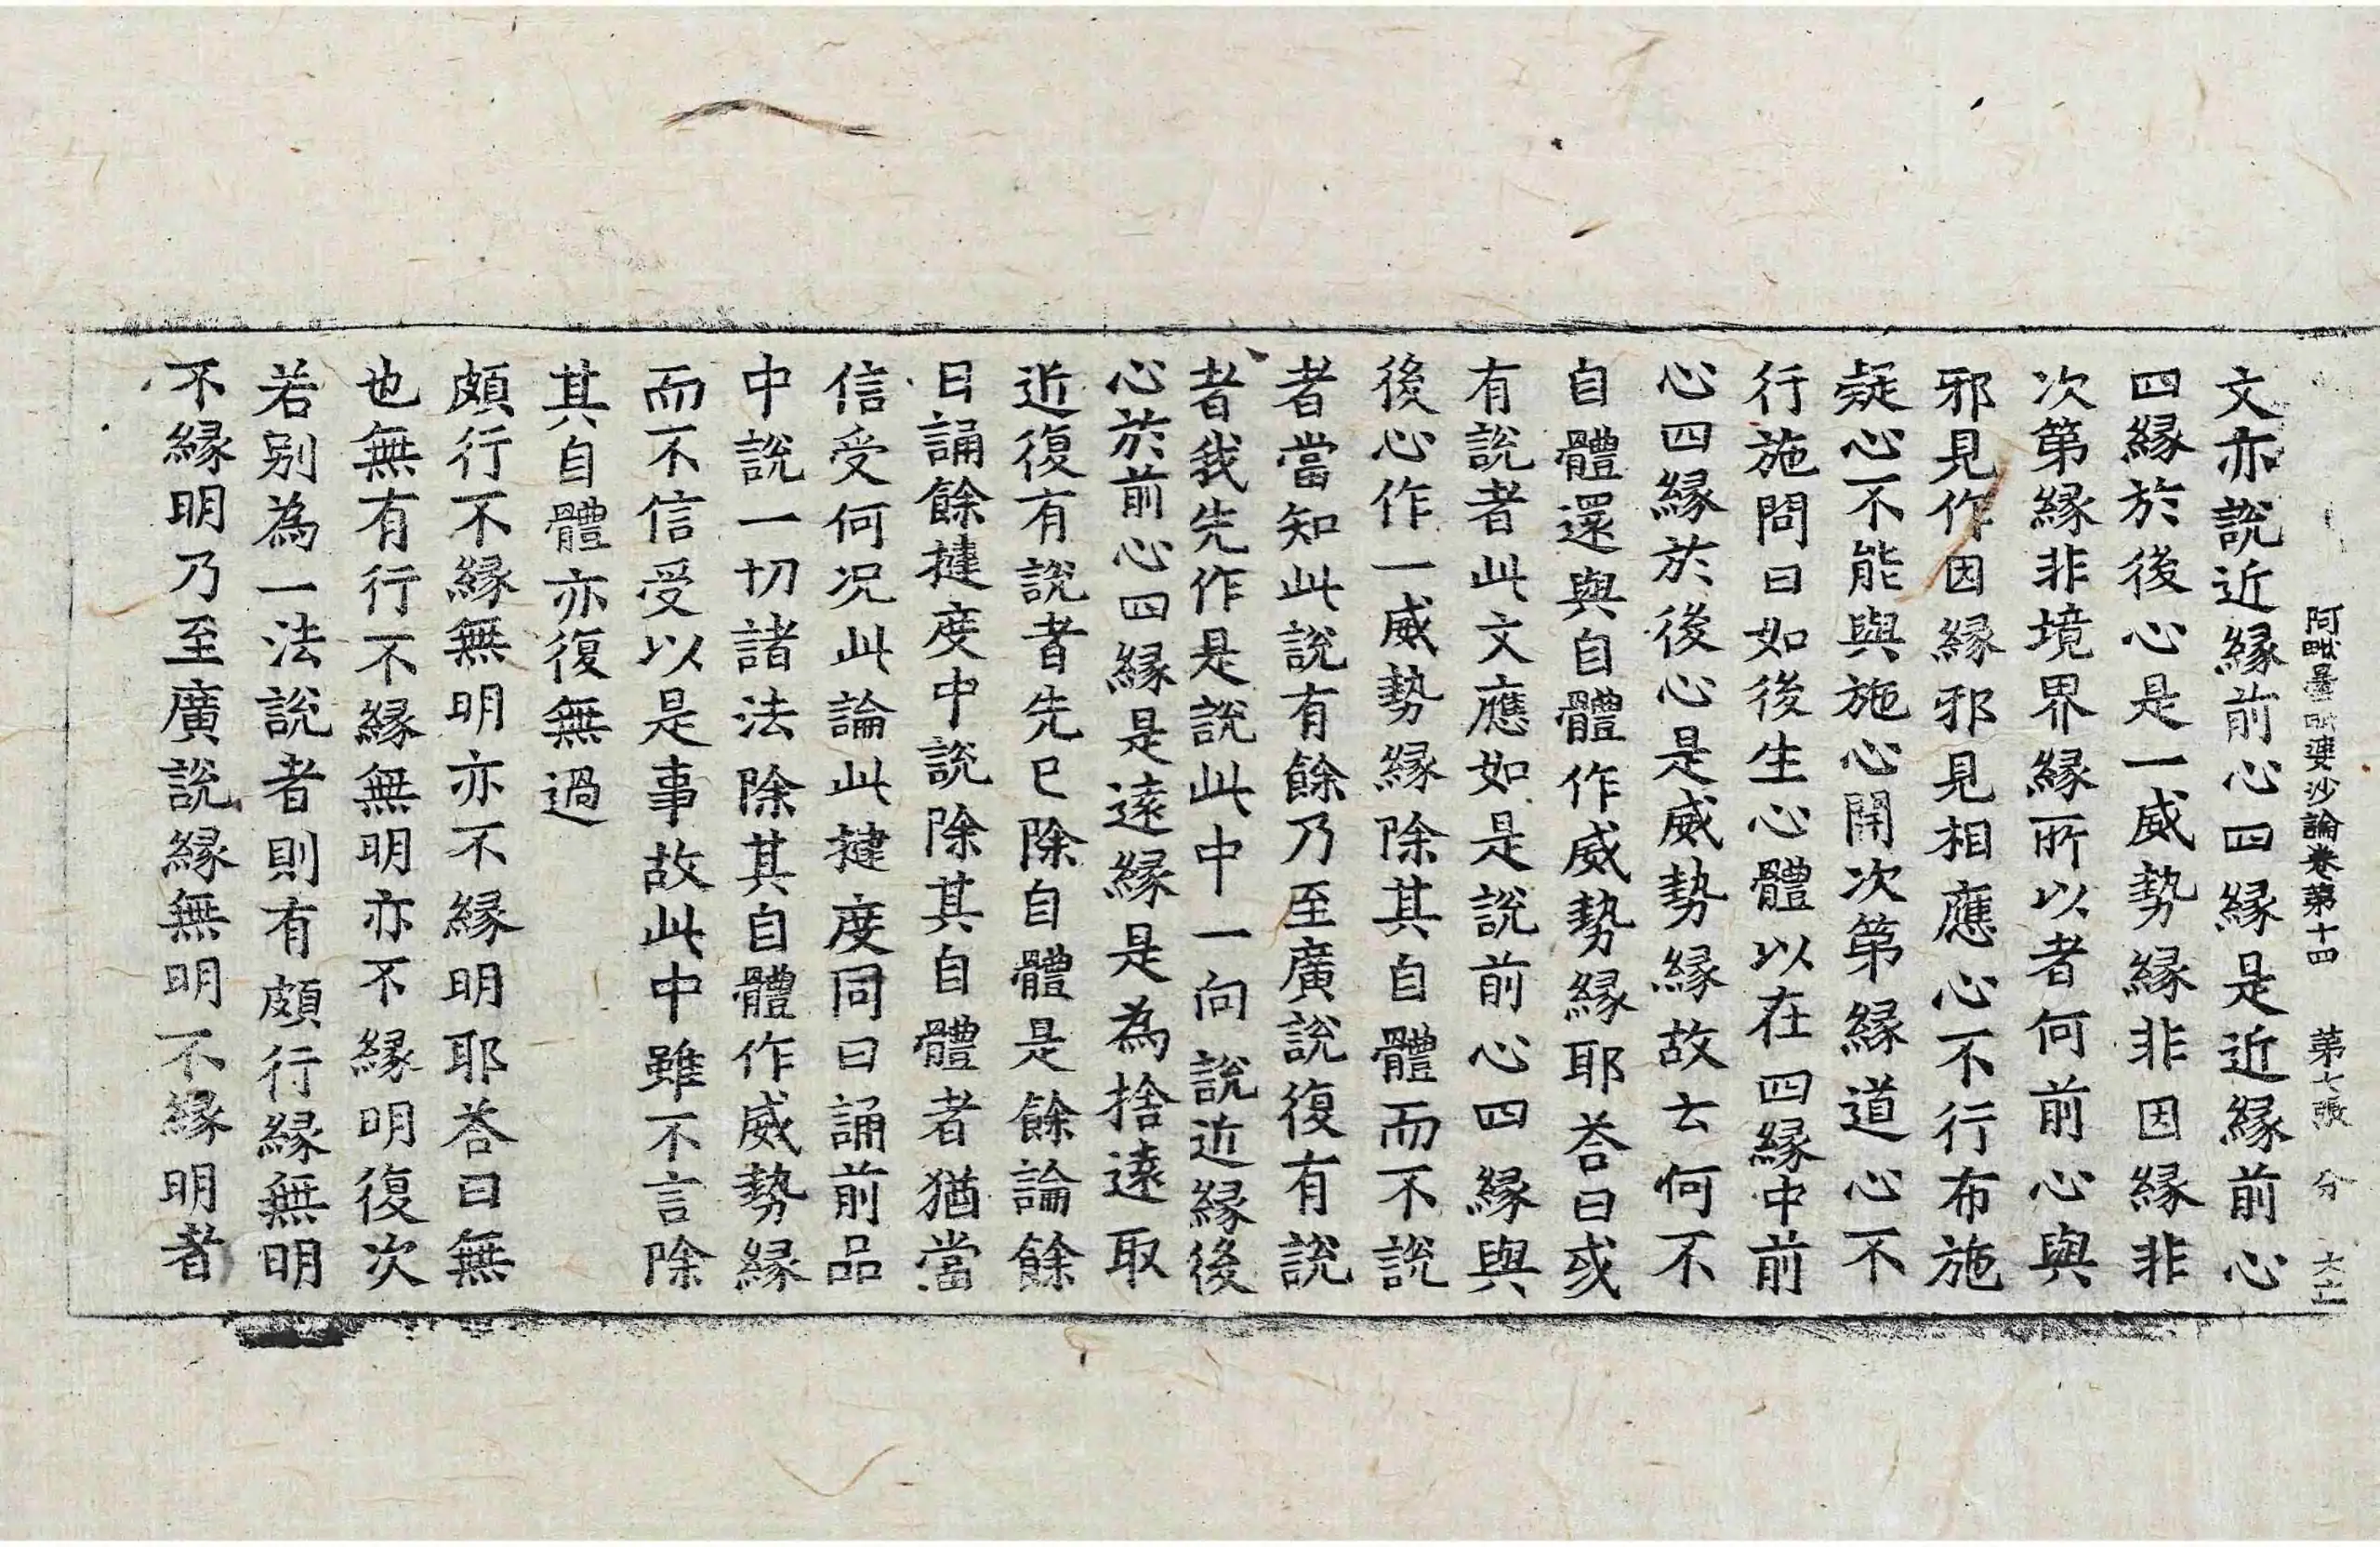 阿毗曇毗婆沙論卷第十四 第七張 分
文亦說近緣前心四緣是近緣前心
四緣於後心是一威勢緣非因緣非
次第緣非境界緣所以者何前心與
邪見作因緣邪見相應心不行布施
疑心不能與施心開次第緣道心不
行施問曰如後生心體以在四緣中前
心四緣於後心是威勢緣故去何不
自體還與自體作威勢緣耶荅曰或
有說者此文應如是說前心四緣與
後心作一威勢緣除其自體而不說
者當知此說有餘乃至廣說復有說
者我先作是說此中一向說近緣後
心於前心四緣是遠緣是為捨遠取
近復有說者先已除自體是餘論餘
日誦餘揵度中說除其自體者猶當
信受何況此論此揵度同日誦前品
中說一切諸法除其自體作威勢緣
而不信受以是事故此中雖不言除
其自體亦復無過
頗行不緣無明亦不緣明耶荅曰無
也無有行不緣無明亦不緣明復次
若別為一法說者則有頗行緣無明
不緣明乃至廣說緣無明不緣明者